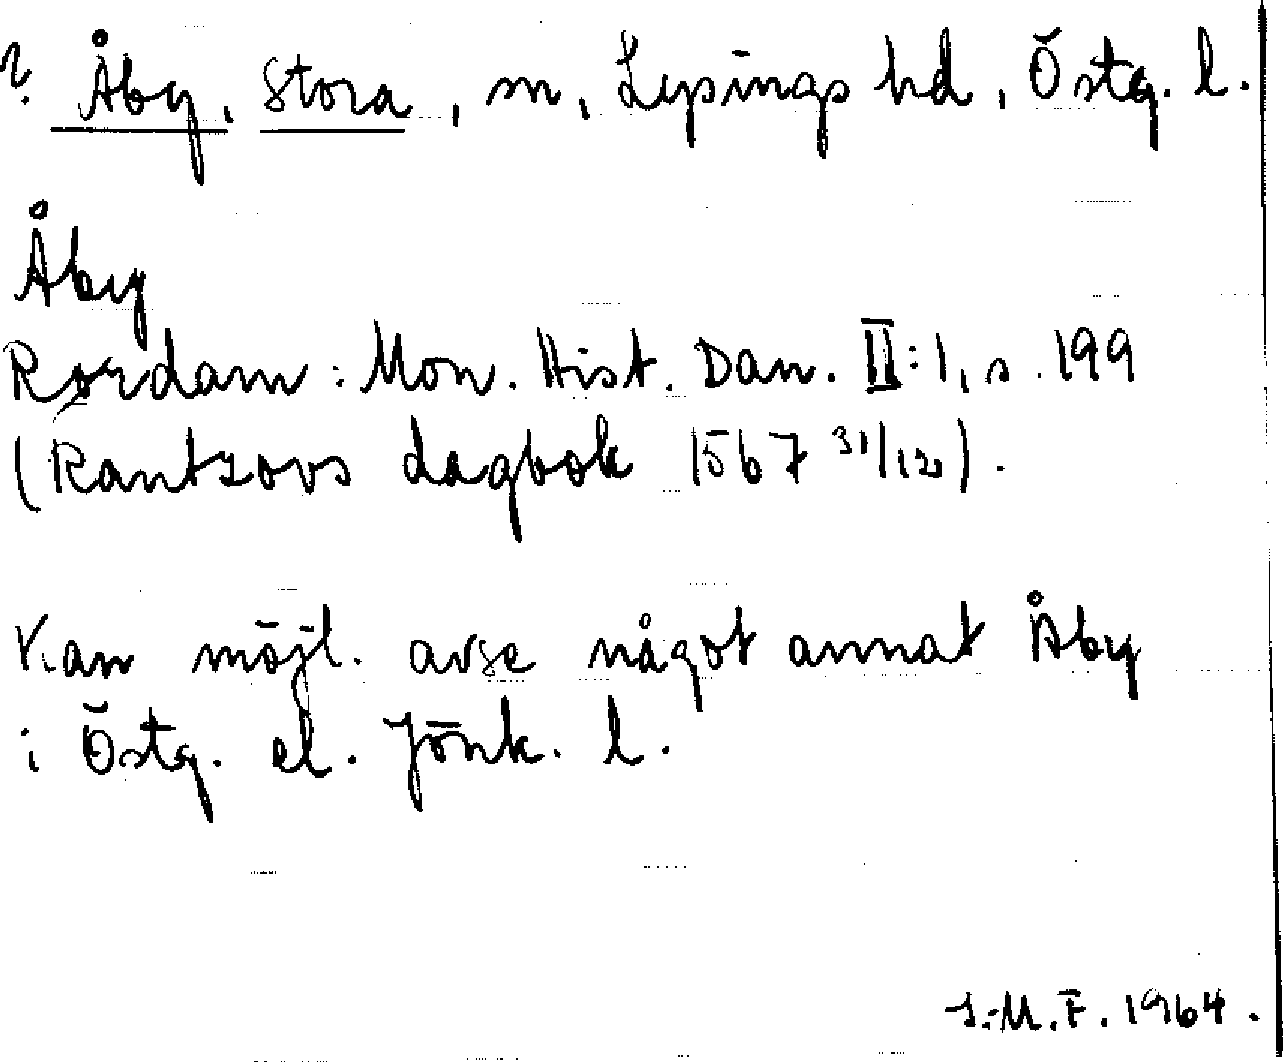 ? Åby, Stora, sn, Lysings hd, Östg. l.
Åby
Rørdam: Mon. Hist. Dan. II:1, s. 199
(Rantzovs dagbok 1567 31/12).
Kan möjl. avse något annat Åby
i Östg. el. Jönk. l.
I.-M. F. 1964.